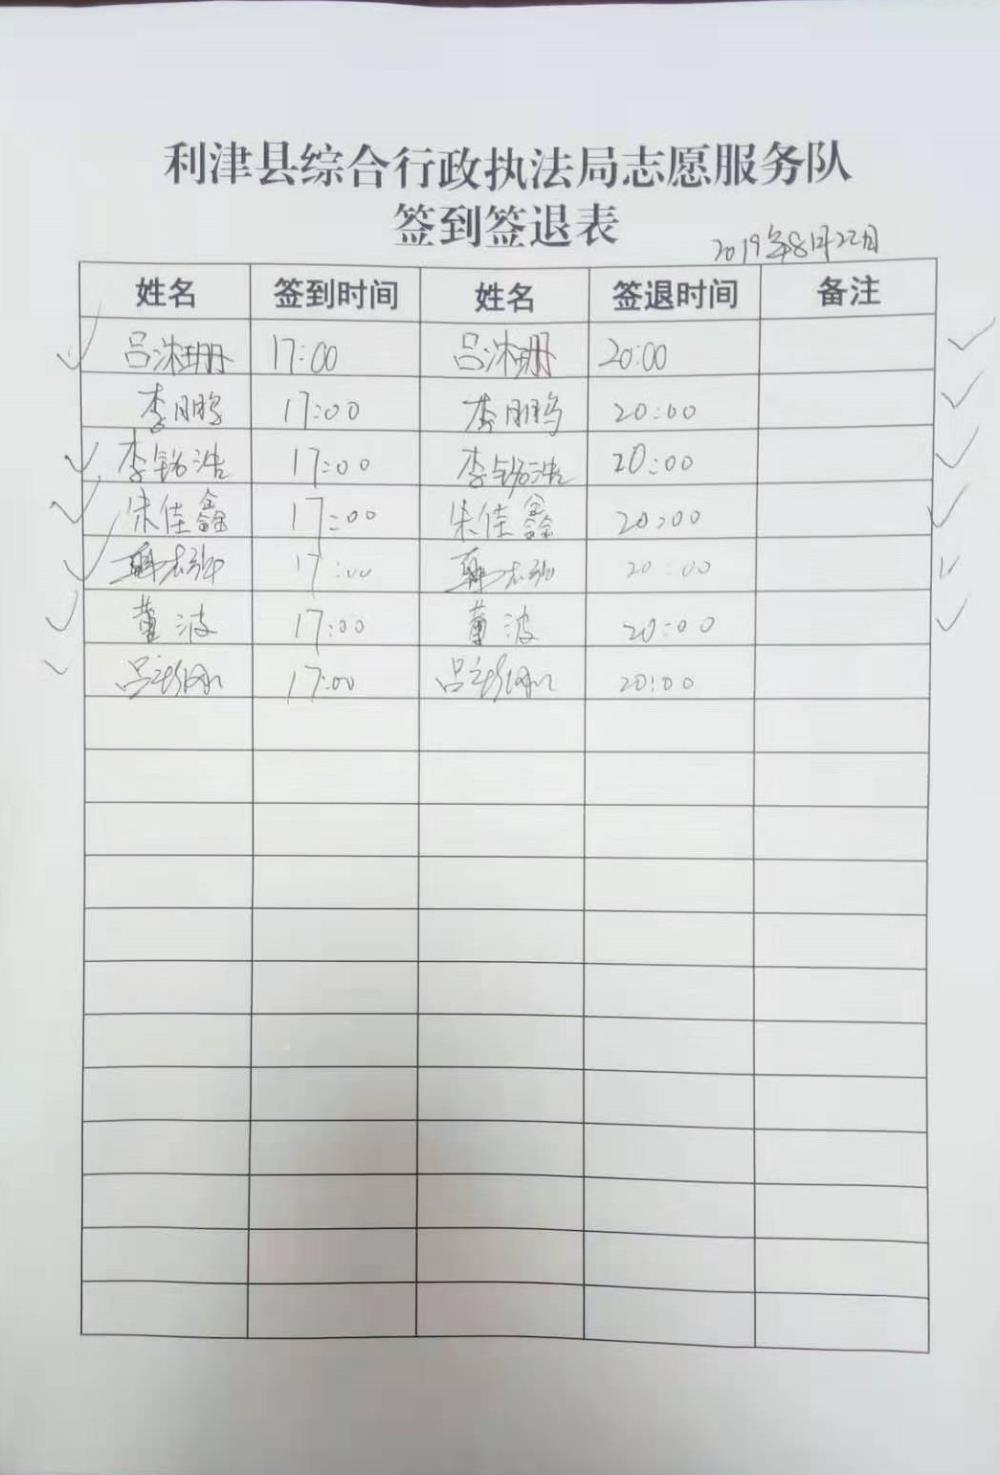 利津县综合行政执法局志愿服务队
签到签退表
2019年8月22日
姓名 签到时间 姓名 签退时间 备注
吕沐珊 17:00 吕沐珊 20:00
李朋鹏 17:00 李朋鹏 20:00
李铭浩 17:00 李铭浩 20:00
朱佳鑫 17:00 朱佳鑫 20:00
17:00 20:00
董波 17:00 董波 20:00
17:00 20:00